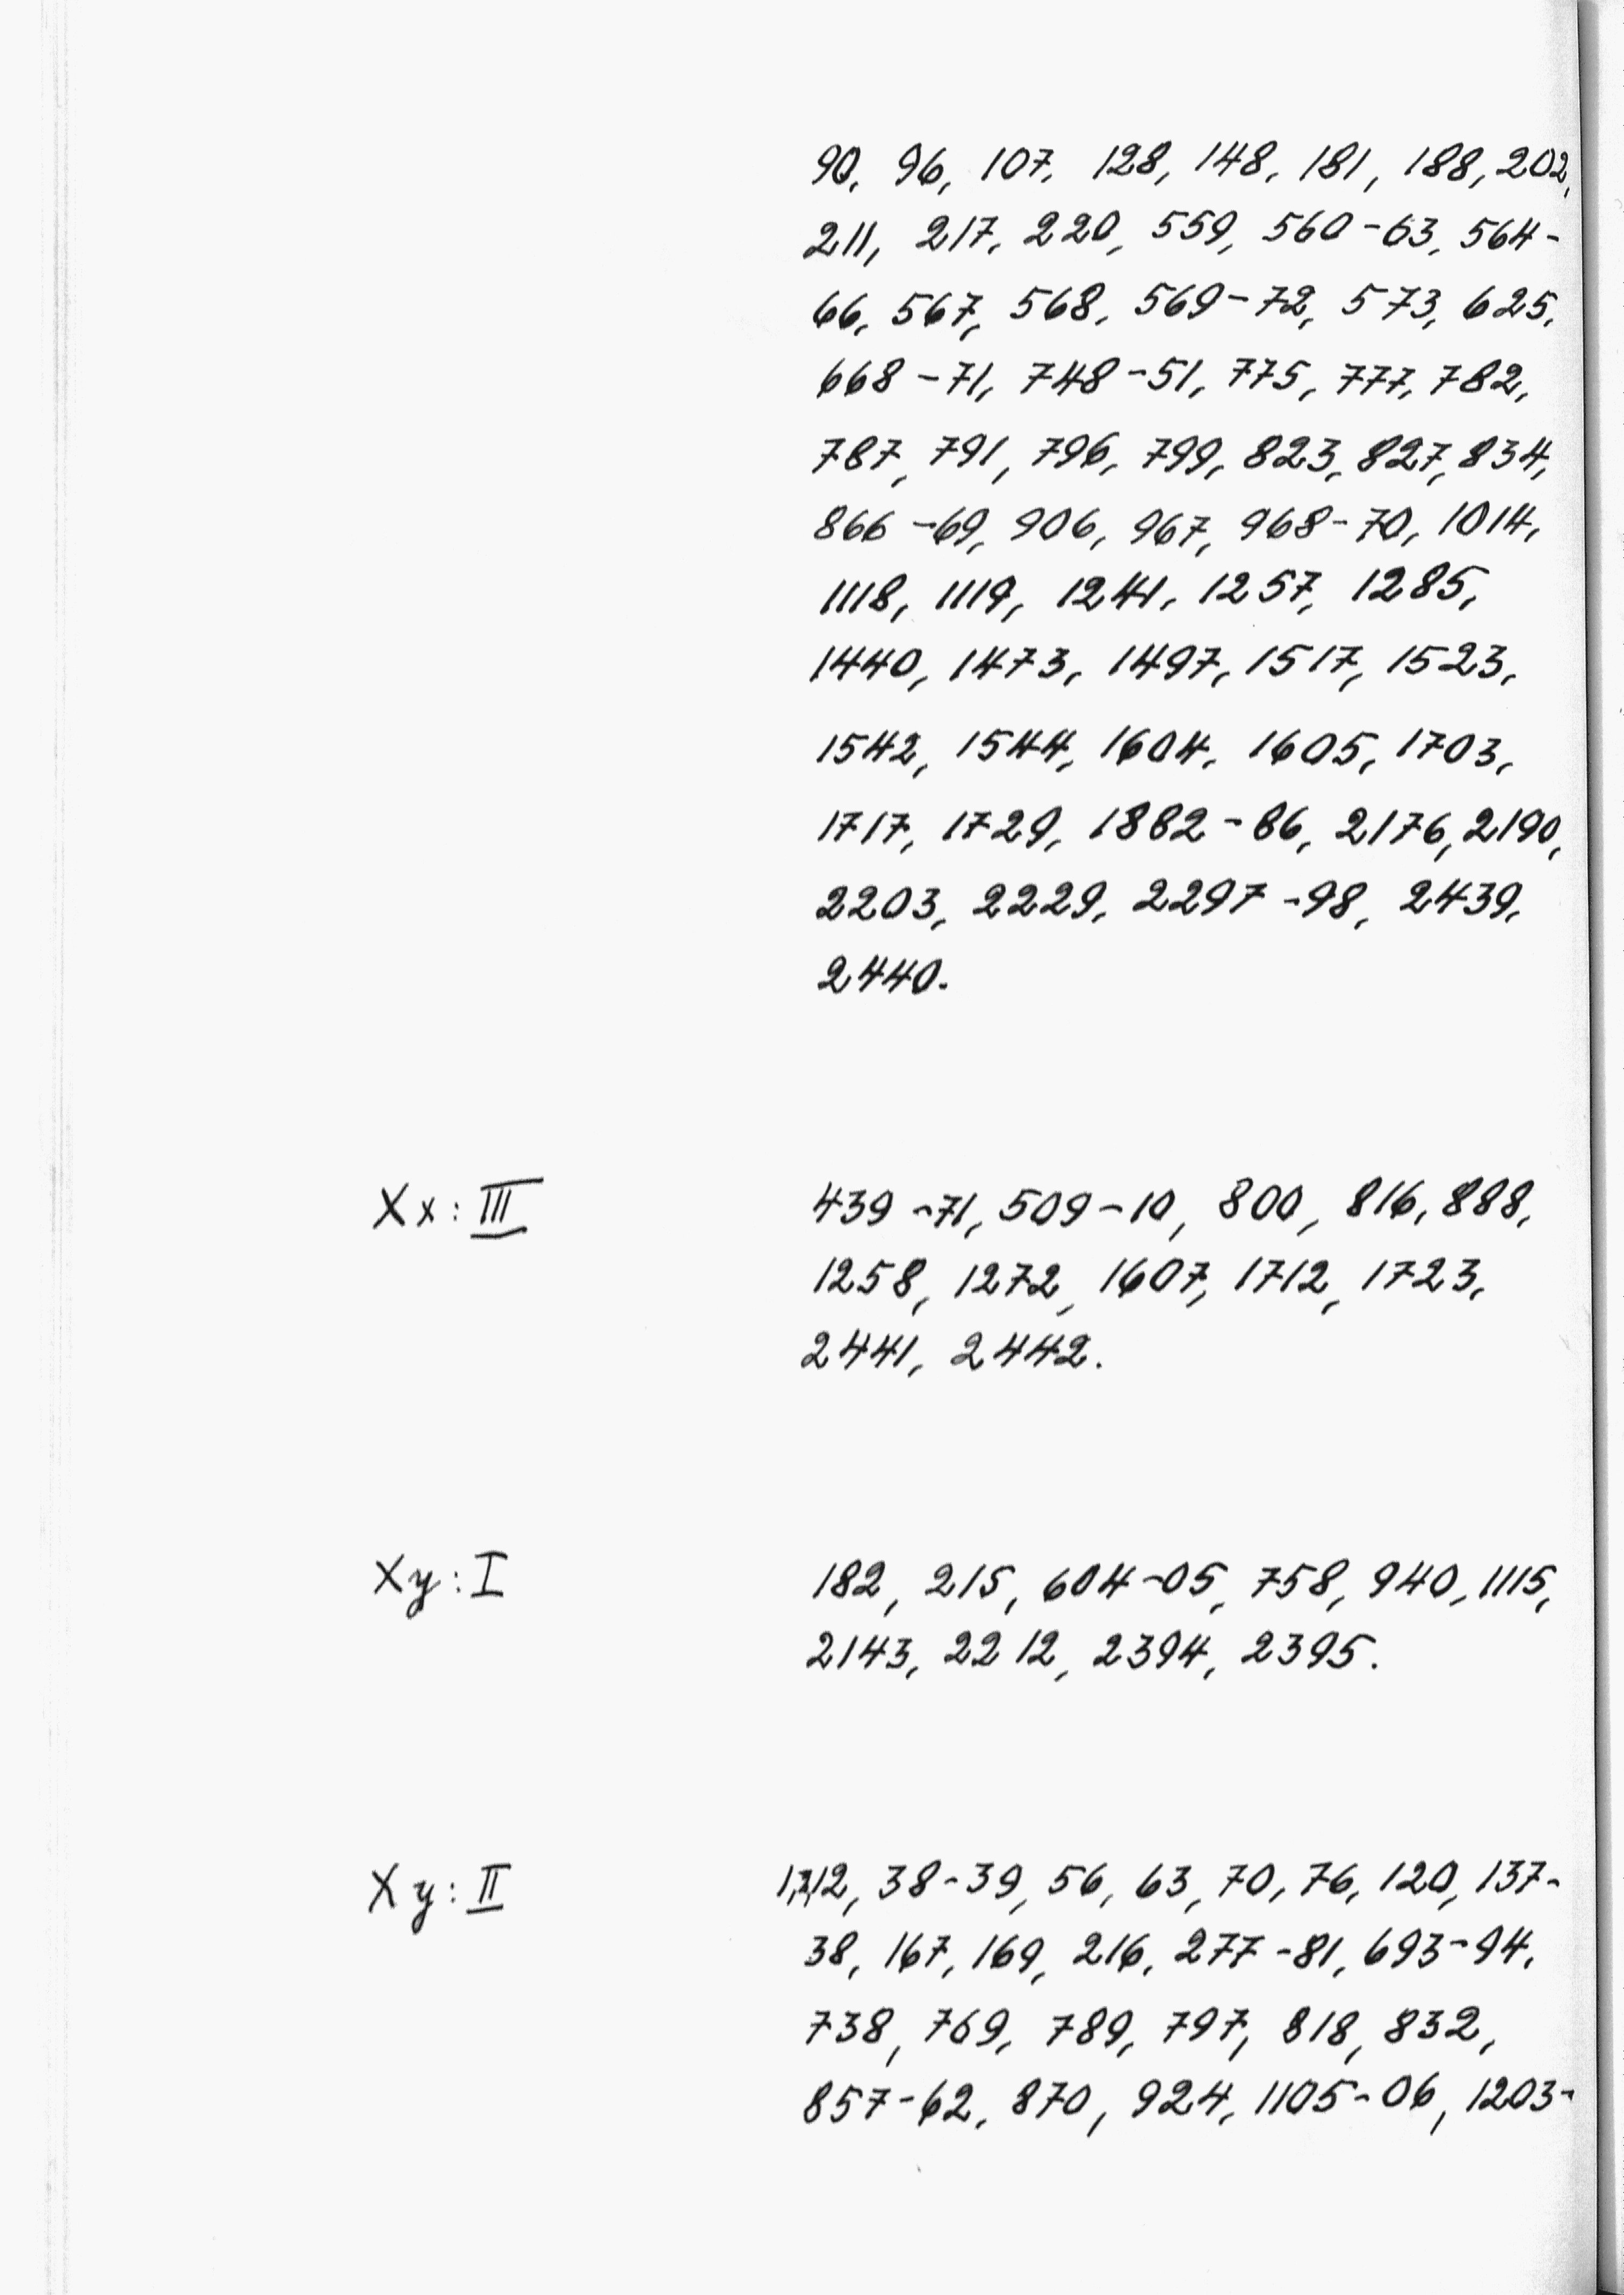 90, 96, 107, 128, 148, 181, 188, 202,
211, 217, 220, 559, 560-63, 564-
66, 567, 568, 569-72, 573, 625,
668-71, 748-51, 775, 777, 782,
787, 791, 796, 799, 823, 827, 834,
866-69, 906, 967, 968-70, 1014,
1118, 1119, 1241, 1257, 1285,
1440, 1473, 1497, 1517, 1523,
1542, 1544, 1604, 1605, 1703,
1717, 1729, 1882-86, 2176, 2190,
2203, 2229, 2297-98, 2439,
2440.
Xx: III 439-71, 509-10, 800, 816, 888,
1258, 1272, 1607, 1712, 1723,
2441, 2442.
Xy: I 182, 215, 604-05, 758, 940, 1115,
2143, 2212, 2394, 2395.
Xy: II 12, 38-39, 56, 63, 70, 76, 120, 137-
38, 167, 169, 216, 277-81, 693-94,
738, 769, 789, 797, 818, 832,
857-62, 870, 924, 1105-06, 1203-